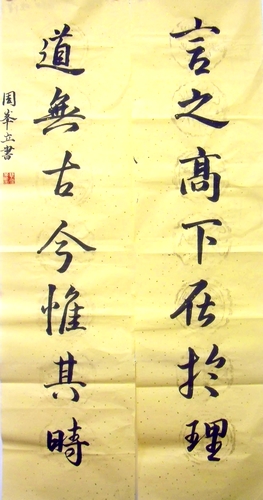 言之高下在於理
道無古今惟其時
周峯立書